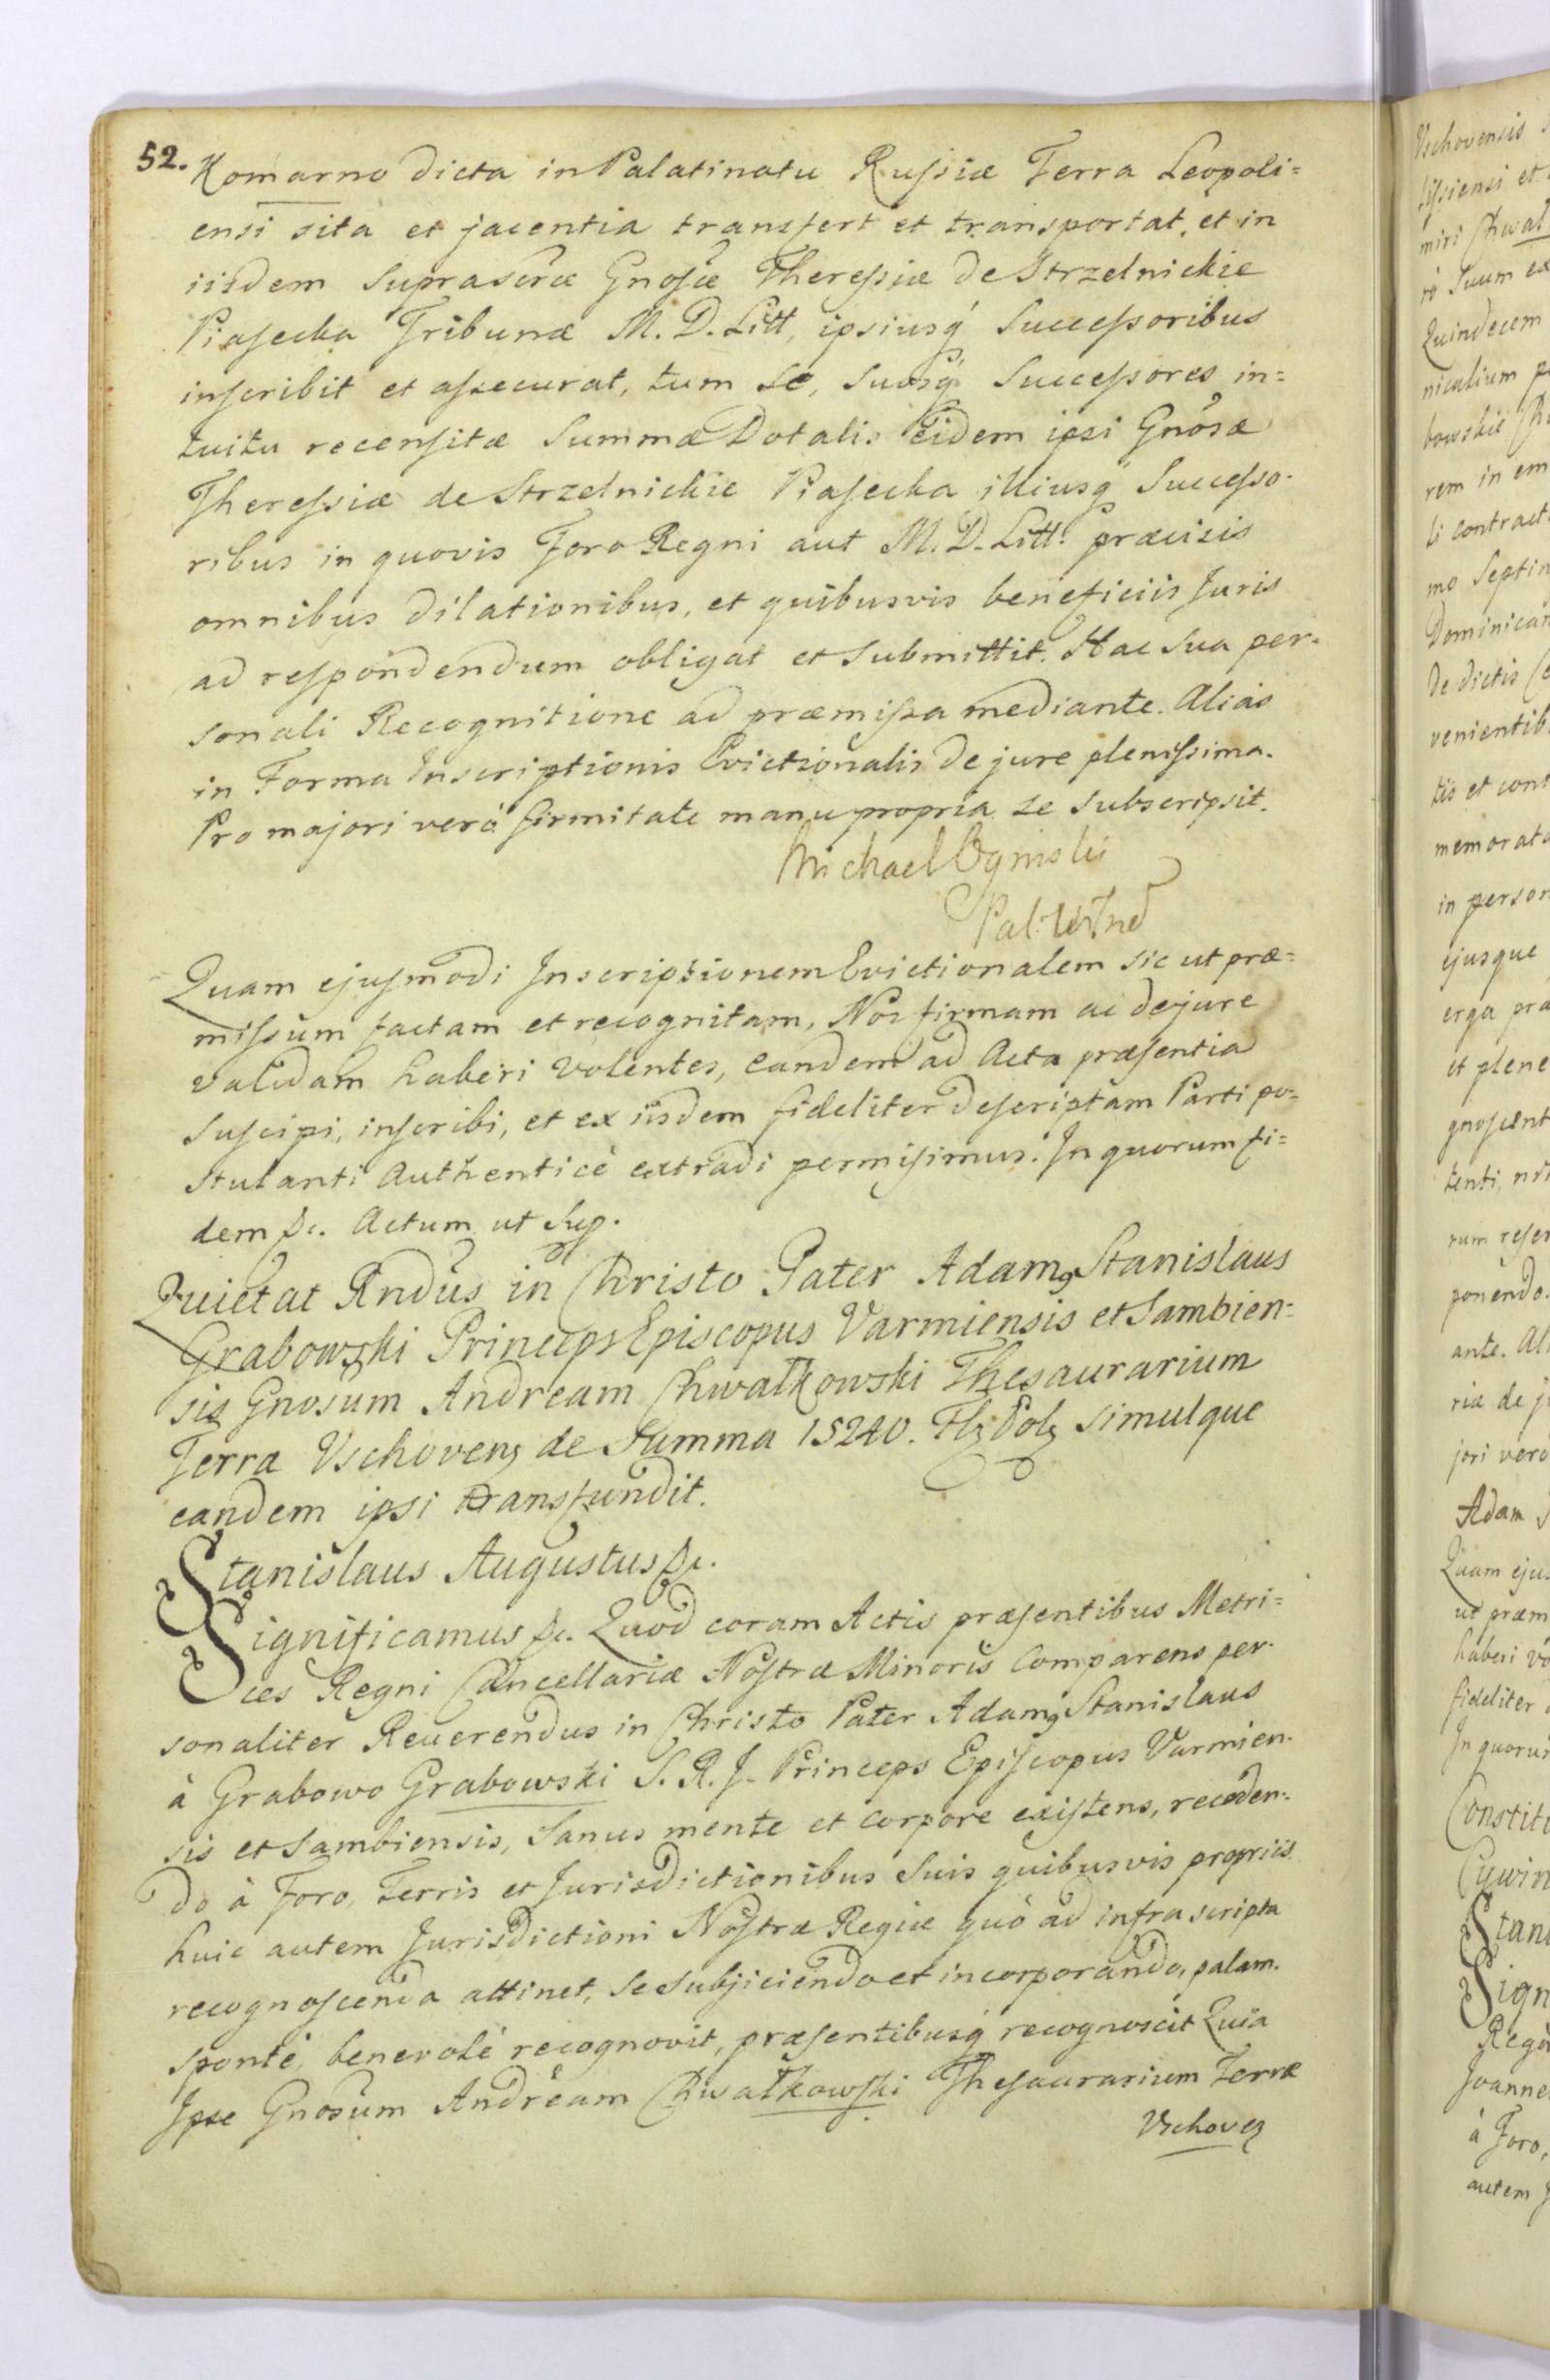 52.
Komarno dicta in Palatinatu Russiæ Terra Leopoli=
ensi sita et jacentia transfert et transportat, et in
iisdem Suprascræ Gnosæ Theressiæ de Strzelnickie
Piasecka Tribunæ M. D. Litt, ipsiusq́ Successoribus
inscribit et assecurat, tum se, suosq́ Successores in=
tuitu recensitæ Summæ Dotalis Eidem ipsi Gnosæ
Theressiæ de Strzelnickie Piasecka illiusq́ Successo-
ribus in quovis Foro Regni aut M. D. Litt: præcisis
omnibus dilationibus, et quibusvis beneficiis Juris
ad respondendum obligat et submittit. Hac sua per-
sonali Recognitione ad præmissa mediante. Aliàs
in Forma Inscriptionis Evictionalis de jure plenissima.
Pro majori verò firmitate manu propria se subscripsit.
Michael Oginski
Quam ejusmodi Inscriptionem Evictionalem sic ut præ=
missum factam et recognitam, Nos firmam ac de jure
validam haberi volentes, eandem ad Acta præsentia
suscipi, inscribi, et ex iisdem fideliter descriptam Parti po-
stulanti Authenticè extradi permisimus. In quorum fi=
dem &c. Actum ut Sup.
Quietat Rndus in Christo Pater Adamꝰ Stanislaus
Grabowski Princeps Episcopus Varmiensis et Sambien=
sis Gnosum Andream Chwałkowski Thesaurarium
Terræ Vschovenꝫ de Summa 15240. Flꝫ Polꝫ simulque
eandem ipsi transfundit.
Stanislaus Augustus &c.
Significamus &c. Quod coram Actis præsentibus Metri=
ces Regni Cancellariæ Nostræ Minoris Comparens per-
sonaliter Reuerendus in Christo Pater Adamꝰ Stanislaus
à Grabowo Grabowski S. R. J. Princeps Episcopus Varmien-
sis et Sambiensis, Sanus mente et corpore existens, receden-
do à Foro, Terris et Jurisdictionibus suis quibusvis propriis
huic autem Jurisdictioni Nostræ Regiæ quò ad infrascripta
recognoscenda attinet, se subjiciendo et incorporando, palam.
sponté, benevolé recognovit, præsentibusq́ recognoscit Quia
Ipse Gnosum Andream Chwałkowski Thesaurarium Terræ
Vschovꝫ
Vschovensis
lissiensi et
miri Chwał
rò suum
Quindecem
niculium
bowskie
rem in em
li contract
mo Septin
Dominican
de dictis
venientib
tis et cont
memorat
in person
ejusque
erga præ
et plene
gnoscent
tenti,
rum reser
ponendo.
ante. Al
riæ de j
jori verò
Adam
Quam eju
ut præm
haberi vo
fideliter
In quorum
Constit
Cywin
Stan
Sign
Regn
Joanne
à Foro,
autem